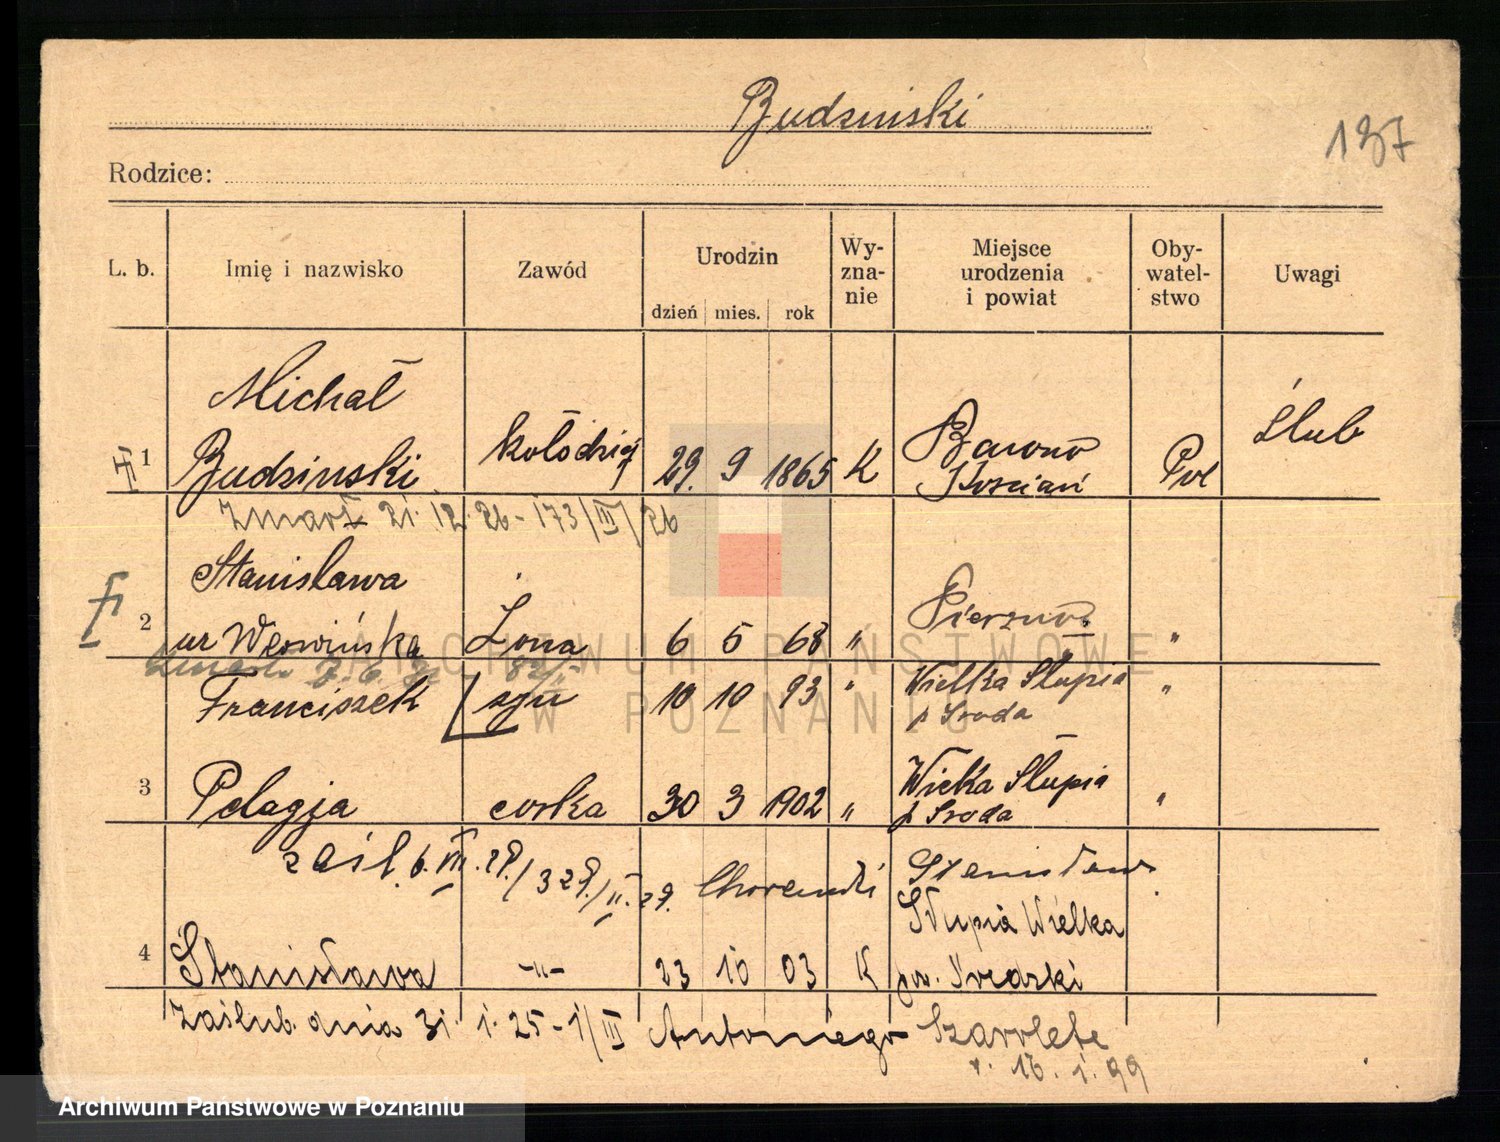 Budzinski
137
Rodzice:
L. b. Imię i nazwisko Zawód Urodzin dzień mies. rok Wy-zna-nie Miejsce urodzenia i powiat Oby-watel-stwo Uwagi
Michał
1 Budzinski kołodziej 29. 9 1865 K Barono Kościan Pol Ślub
Zmarł 21. 12. 26 - 173/III/26
Stanisława
2 ur Żona 6 5 68 " Pierzno "
Franciszek syn 10 10 93 " Wielka Słupia p Sroda "
3 Pelagja corka 30 3 1902 " Wielka Słupia p Sroda "
zaśl. 6. VIII. 29. / 329 / II. 29. Stanisław
Słupia Wielka
4 Stanisława -"- 23 10 03 K pow. Sredzki
Zaślub. dnia 31. 1. 25 - 1/III Antoniego Szarolete
r. 16. 1. 99
ARCHIWUM PAŃSTWOWE
W POZNANIU
Archiwum Państwowe w Poznaniu